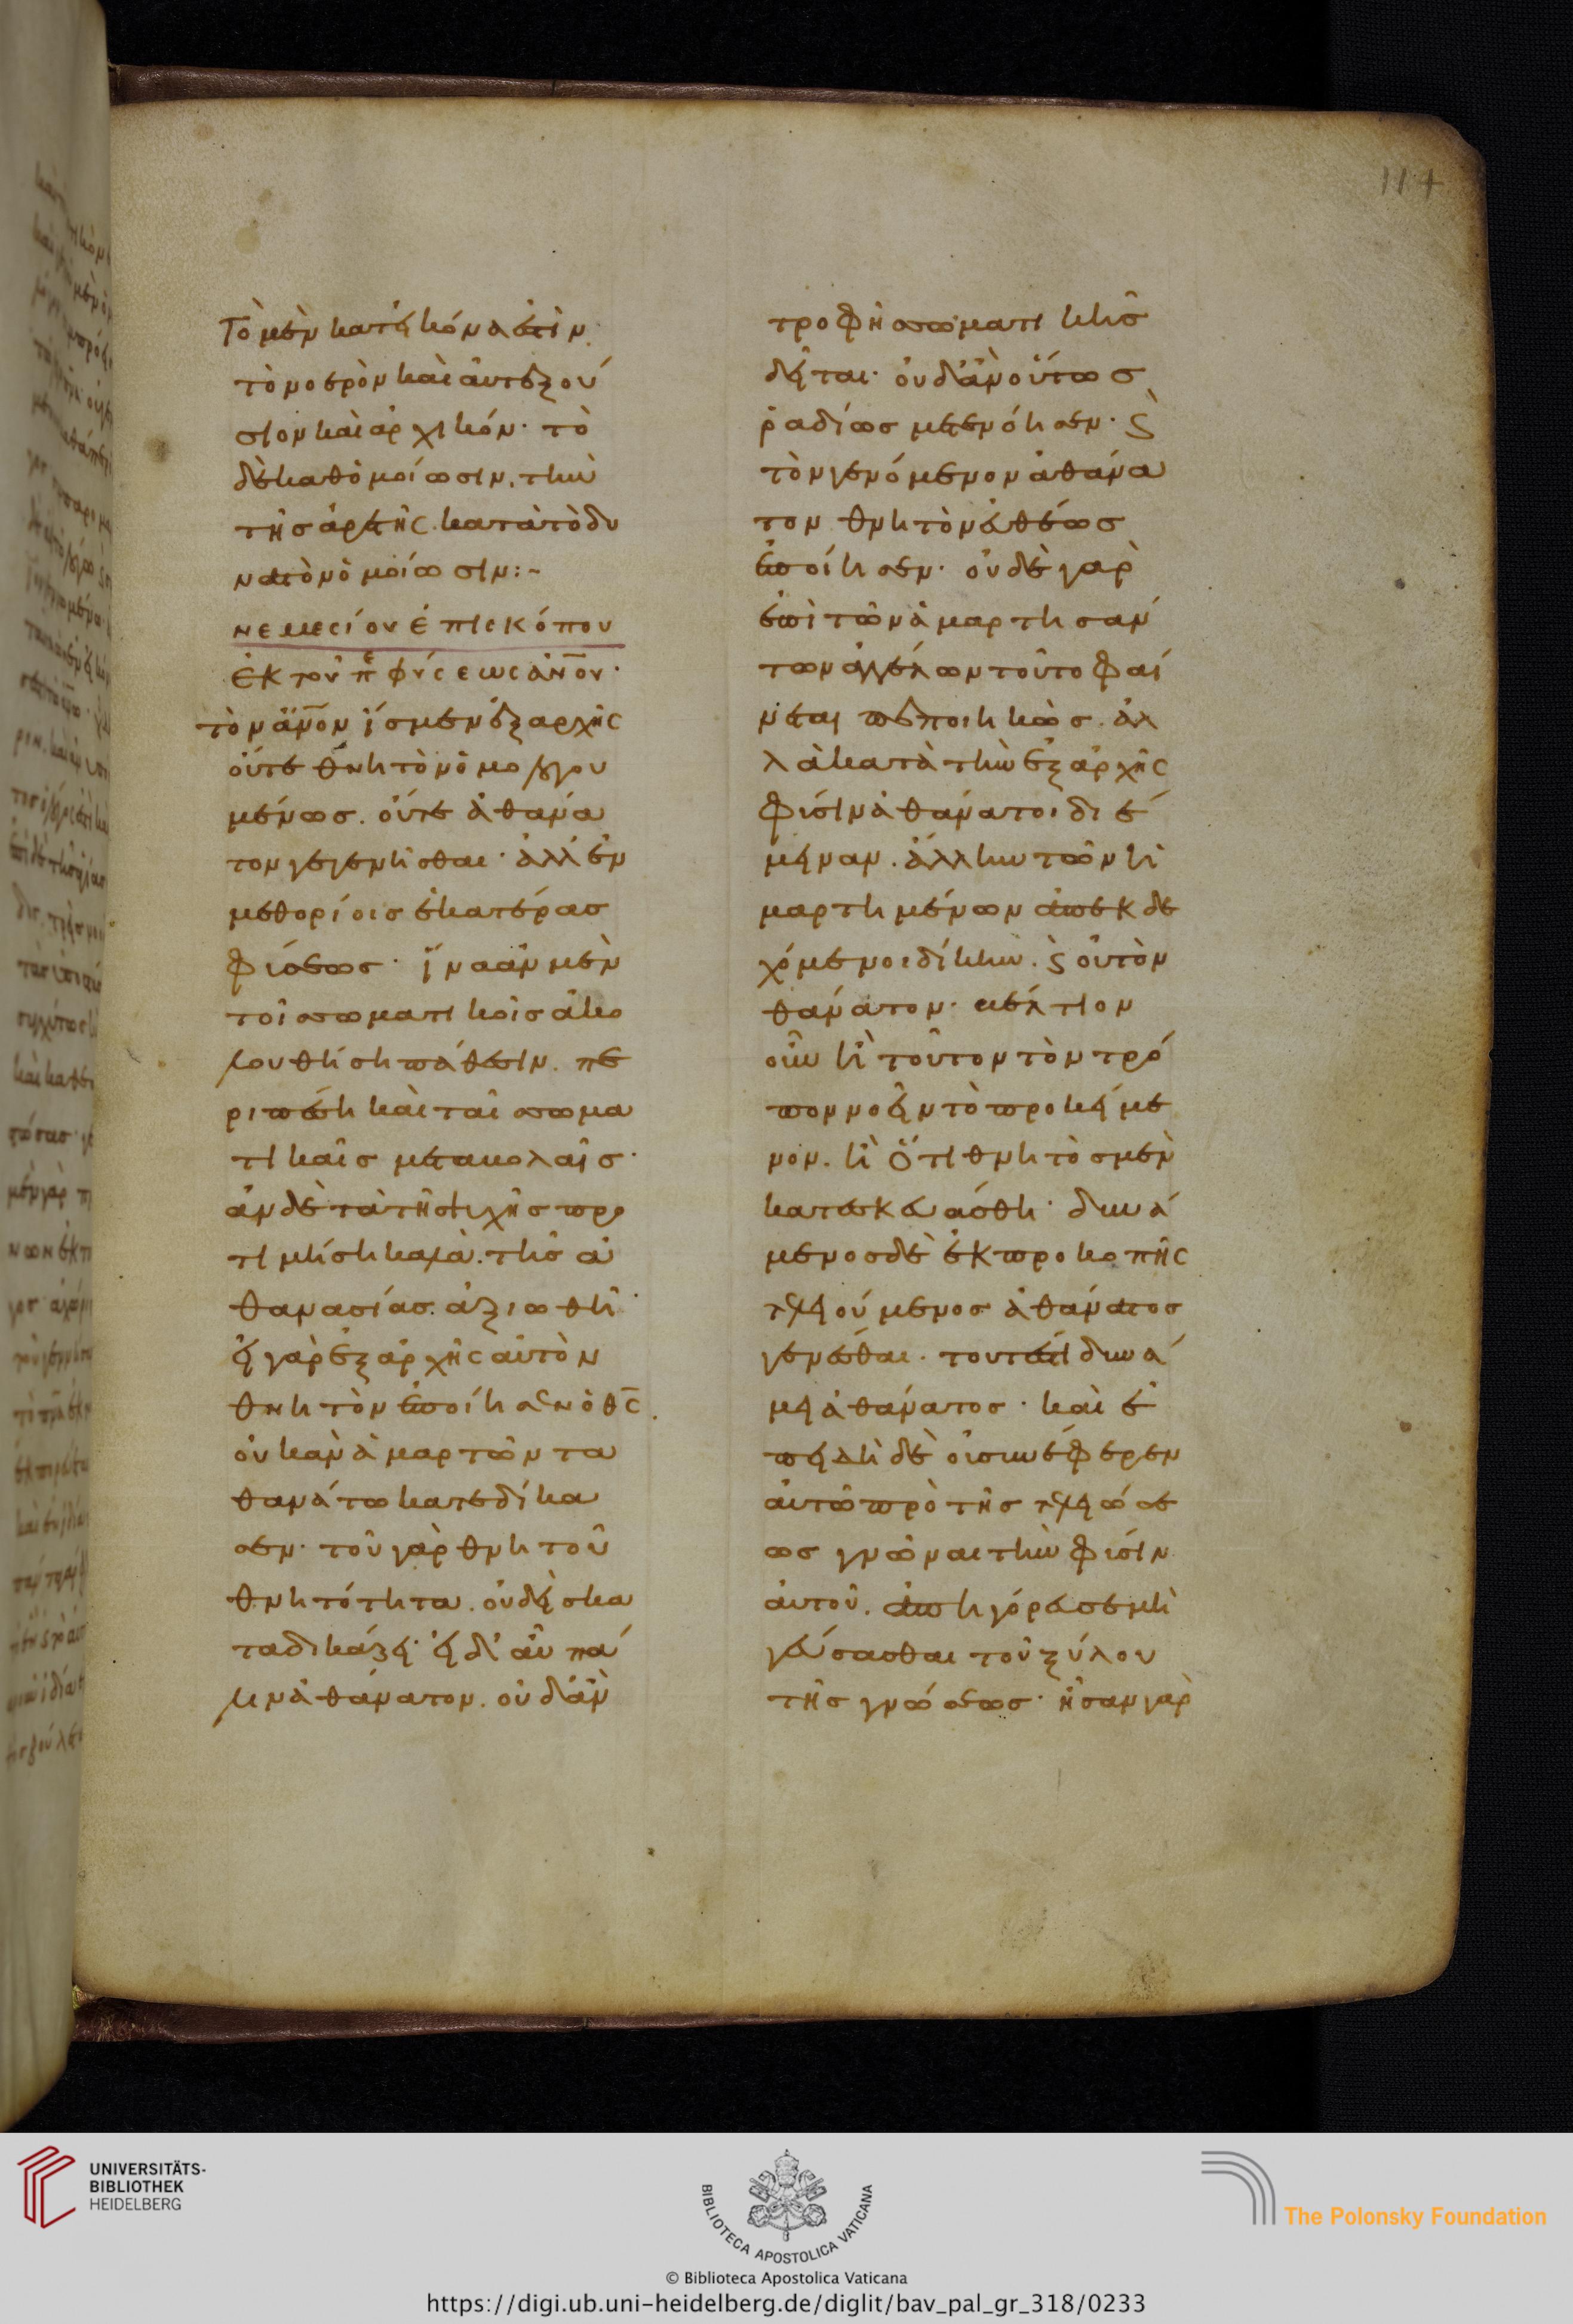 114
Τὸ μὲν κατεἰκόνα ἐστὶν
τὸ νοερὸν καὶ αὐτεξού
σιον καὶ ἀρχικόν· τὸ
δὲ καθομοίωσιν, τὴν
τῆς ἀρετῆς κατὰ τὸ δυ
νατὸν ὁμοίωσιν:-
νεμεσίου ἐπισκόπου
ἐκ τοῦ πε φύσεως ἀν̅ου·
τὸν ἄν̅ον ἴσμεν ἐξαρχῆς
οὔτε θνητὸν ὁμολογου
μένως. οὔτε ἀθάνα
τον γεγενῆσθαι· ἀλλ' ἐν
μεθορίοις ἑκατέρας
φύσεως· ἵνα ἂν μὲν
τοῖς σωματικοῖς ἀκο
λουθήση πάθεσιν. πε
ριπέση καὶ ταῖς σωμα
τικαῖς μεταβολαῖς·
ἂν δὲ τὰ τῆς ψυχῆς προ
τιμήση καλὰ. τῆς ἀ
θανασίας ἀξιωθῆ·
εἰ γὰρ ἐξαρχῆς αὐτὸν
θνητὸν ἐποίησεν ὁ θ̅ς.
οὐκ ἂν ἁμαρτῶντα
θανάτω κατεδίκα
σεν· τοῦ γὰρ θνητοῦ
θνητότητα. οὐδεὶς κα
ταδικάζει· εἰ δ' αὖ πά
λιν ἀθάνατον. οὐδ' ἂν
τροφῆς σωματικῆς
δεῖται· οὐδ' ἂν οὕτως
ῥαδίως μετενόησεν· ϛ
τὸν γενόμενον ἀθάνα
τον θνητὸν εὐθέως
ἐποίησεν· οὐδὲ γὰρ
ἐπὶ τῶν ἁμαρτησάν
των ἀγγέλων τοῦτο φαί
νεται πεποιηκὼς. ἀλ
λὰ κατὰ τὴν ἐξαρχῆς
φύσιν ἀθάνατοι διέ
μειναν. ἄλλην τῶν ἡ
μαρτημένων ἀπεκδε
χόμενοι δίκην. ϛ οὐ τὸν
θάνατον· βέλτιον
οὖν ἢ τοῦτον τὸν τρό
πον νοεῖν τὸ προκείμε
νον. ἢ ὅτι θνητὸς μὲν
κατεσκευάσθη· δυνά
μενος δὲ ἐκ προκοπῆς
τελειούμενος ἀθάνατος
γενέσθαι. τουτέστι δυνά
μει ἀθάνατος· καὶ ἐ
πειδὴ δὲ οὐ συνέφερεν
αὐτῶ πρὸ τῆς τελειώσε
ως γνῶναι τὴν φύσιν
αὐτοῦ. ἀπηγόρευσε μὴ
γεύσασθαι τοῦ ξύλου
τῆς γνώσεως· ἦσαν γὰρ
UNIVERSITÄTS-
BIBLIOTHEK
HEIDELBERG
BIBLIOTECA APOSTOLICA VATICANA
© Biblioteca Apostolica Vaticana
The Polonsky Foundation
https://digi.ub.uni-heidelberg.de/diglit/bav_pal_gr_318/0233